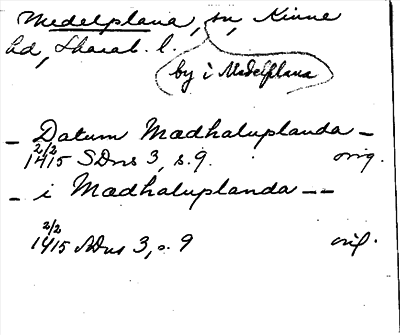 Medelplana, sn, Kinne
hd, Skarab. l.
by i Medelplana
– Datum Mædhaluplanda –
2/2 1415 SDns 3, s. 9. orig.
– i Mædhaluplanda – –
2/2 1415 SDns 3, s. 9 orig.